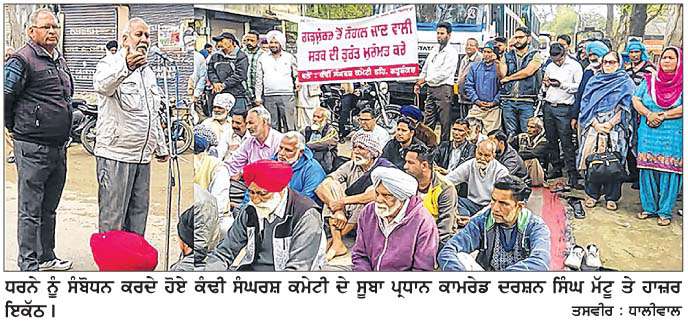 ਗੜ੍ਹਸ਼ੰਕਰ ਤੋਂ ਨੰਗਲ ਜਾਣ ਵਾਲੀ
ਸੜਕ ਦੀ ਤੁਰੰਤ ਮੁਰੰਮਤ ਕਰੋ
ਕੰਢੀ ਸੰਘਰਸ਼ ਕਮੇਟੀ
ਧਰਨੇ ਨੂੰ ਸੰਬੋਧਨ ਕਰਦੇ ਹੋਏ ਕੰਢੀ ਸੰਘਰਸ਼ ਕਮੇਟੀ ਦੇ ਸੂਬਾ ਪ੍ਰਧਾਨ ਕਾਮਰੇਡ ਦਰਸ਼ਨ ਸਿੰਘ ਮੱਟੂ ਤੇ ਹਾਜ਼ਰ
ਇਕੱਠ। ਤਸਵੀਰ : ਧਾਲੀਵਾਲ